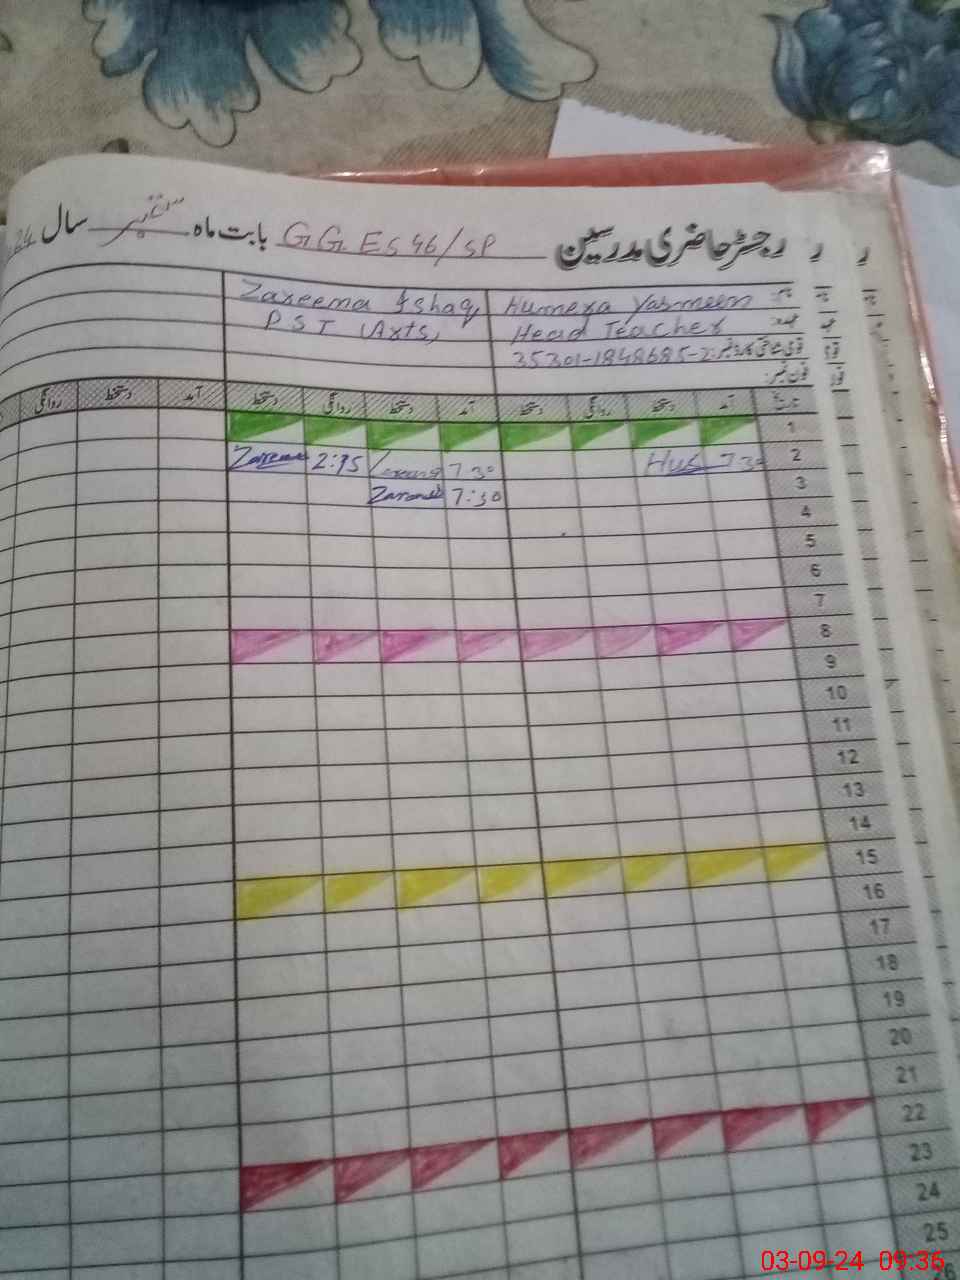 رجسٹر حاضری مدرسین GGES 46/SP بابت ماہ ستمبر سال 24
نام Humera Yasmeen Zareema Ishaq
عہدہ Head Teacher PST (Arts)
قومی شناختی کارڈ نمبر: 35301-1848685-2
فون نمبر:
تاریخ آمد دستخط روانگی دستخط آمد دستخط روانگی دستخط آمد دستخط روانگی
1
2 7 30 Hus 7 30 2:15 Zareema
3 7:30 Zareema
4
5
6
7
8
9
10
11
12
13
14
15
16
17
18
19
20
21
22
23
24
25
26
03-09-24 09:36